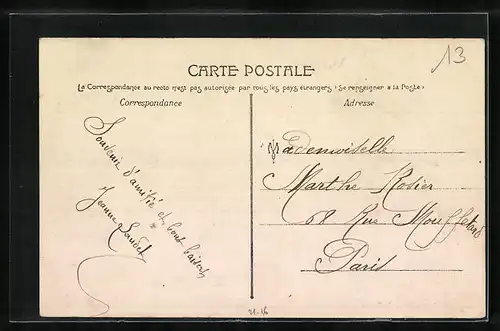 13
CARTE POSTALE
La Correspondance au recto n'est pas autorisée par tous les pays étrangers (Se renseigner à la Poste)
Correspondance
Adresse
Souvenir
d'amitié et bons baisers
Jeanne
Mademoiselle
Marthe Rosier
68 Rue Mouffetard
Paris
21-16